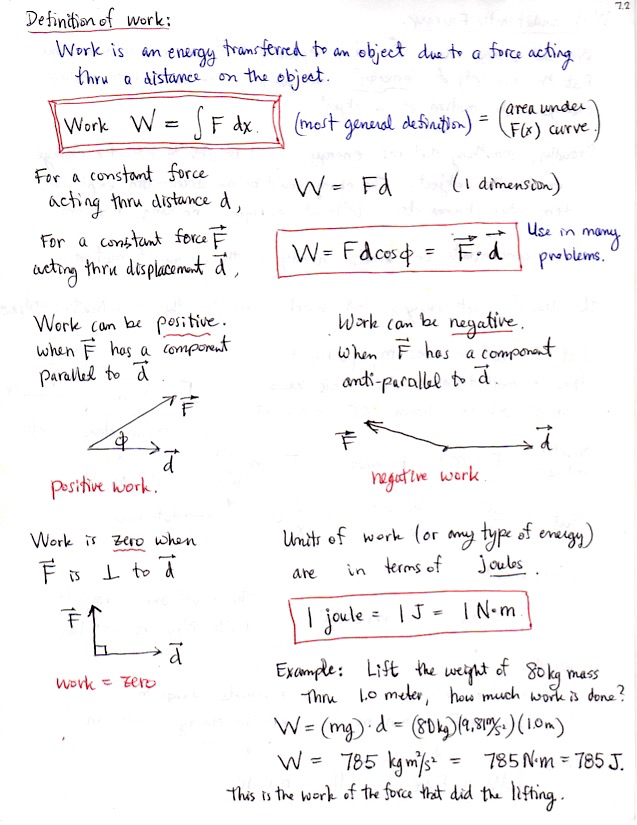 7.2
Definition of work:
Work is an energy transferred to an object due to a force acting
thru a distance on the object.
Work W = ∫ F dx. (most general definition) = (area under
F(x) curve.)
For a constant force
acting thru distance d,
W = Fd (1 dimension)
For a constant force F⃗
acting thru displacement d⃗,
W = Fdcosϕ = F⃗·d⃗
Use in many
problems.
Work can be positive.
when F⃗ has a component
parallel to d⃗.
F⃗
ϕ
d⃗
positive work.
Work can be negative.
when F⃗ has a component
anti-parallel to d⃗.
F⃗
d⃗
negative work.
Work is zero when
F⃗ is ⊥ to d⃗
F⃗
d⃗
work = zero
Units of work (or any type of energy)
are in terms of joules.
1 joule = 1 J = 1 N·m
Example: Lift the weight of 80 kg mass
Thru 1.0 meter, how much work is done?
W = (mg)·d = (80kg)(9.81m/s²)(1.0m)
W = 785 kg m²/s² = 785 N·m = 785 J.
This is the work of the force that did the lifting.